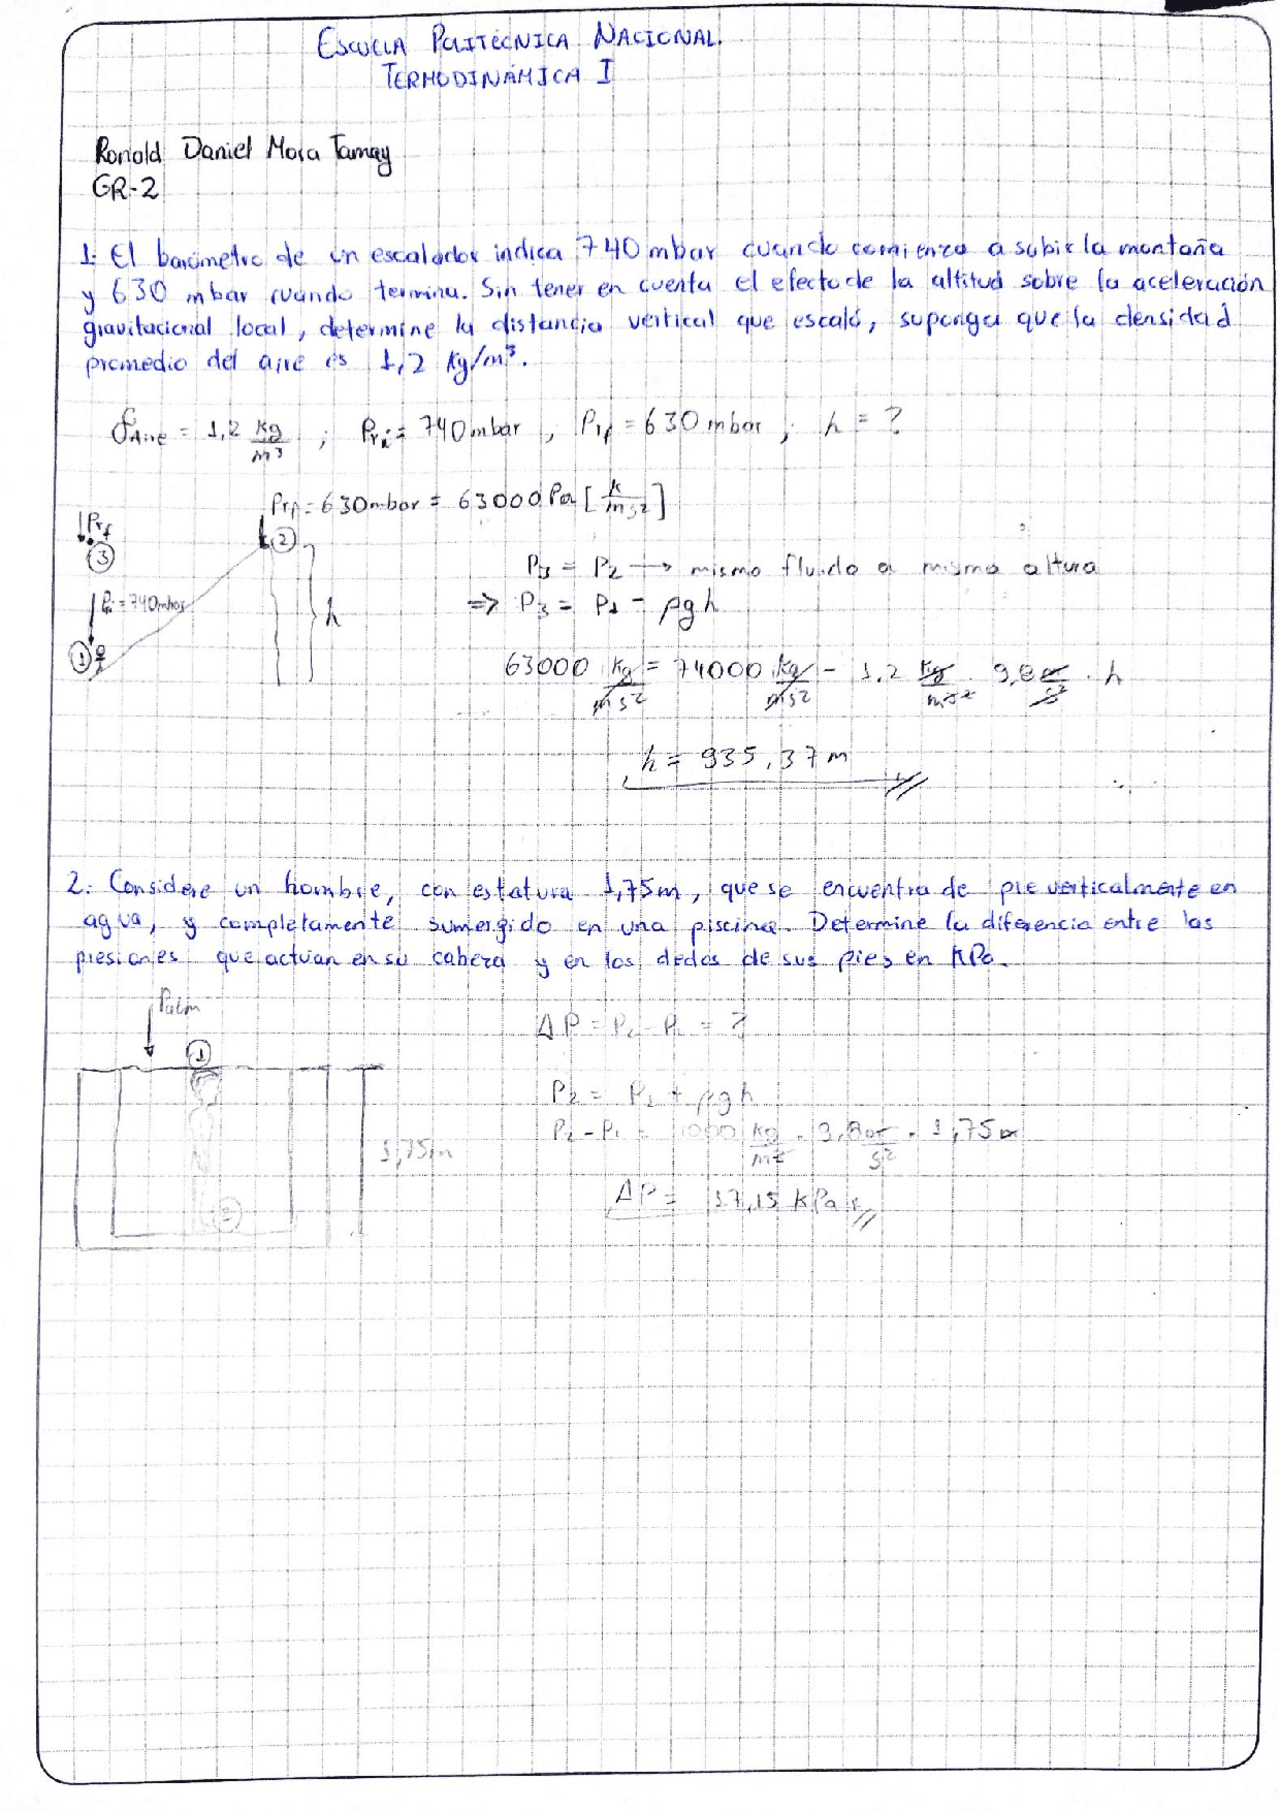 ESCUELA POLITÉCNICA NACIONAL.
TERMODINÁMICA I
Ronald Daniel Mora Tamay
GR-2
1: El barómetro de un escalador indica 740 mbar cuando comienza a subir la montaña
y 630 mbar cuando termina. Sin tener en cuenta el efecto de la altitud sobre la aceleración
gravitacional local, determine la distancia vertical que escaló, suponga que la densidad
promedio del aire es 1,2 Kg/m³.
δAire = 1,2 kg/m³ ; Pri = 740 mbar , Prf = 630 mbar ; h = ?
Prf = 630 mbar = 63000 Pa [k/ms²]
Prf
③
②
Pi = 740 mbar
①
h
P3 = P2 → mismo fluido a misma altura
⇒ P3 = P1 - ρgh
63000 kg/ms² = 74000 kg/ms² - 1.2 kg/m³ . 9,8 m/s² . h
h = 935,37 m
2: Considere un hombre, con estatura 1,75m, que se encuentra de pie verticalmente en
agua, y completamente sumergido en una piscina. Determine la diferencia entre las
presiones que actúan en su cabeza y en los dedos de sus pies en KPa.
Patm
①
②
1,75m
ΔP = P2 - P1 = ?
P2 = P1 + ρgh
P2 - P1 = 1000 kg/m³ . 9,8 m/s² . 1,75 m
ΔP = 17,15 kPa